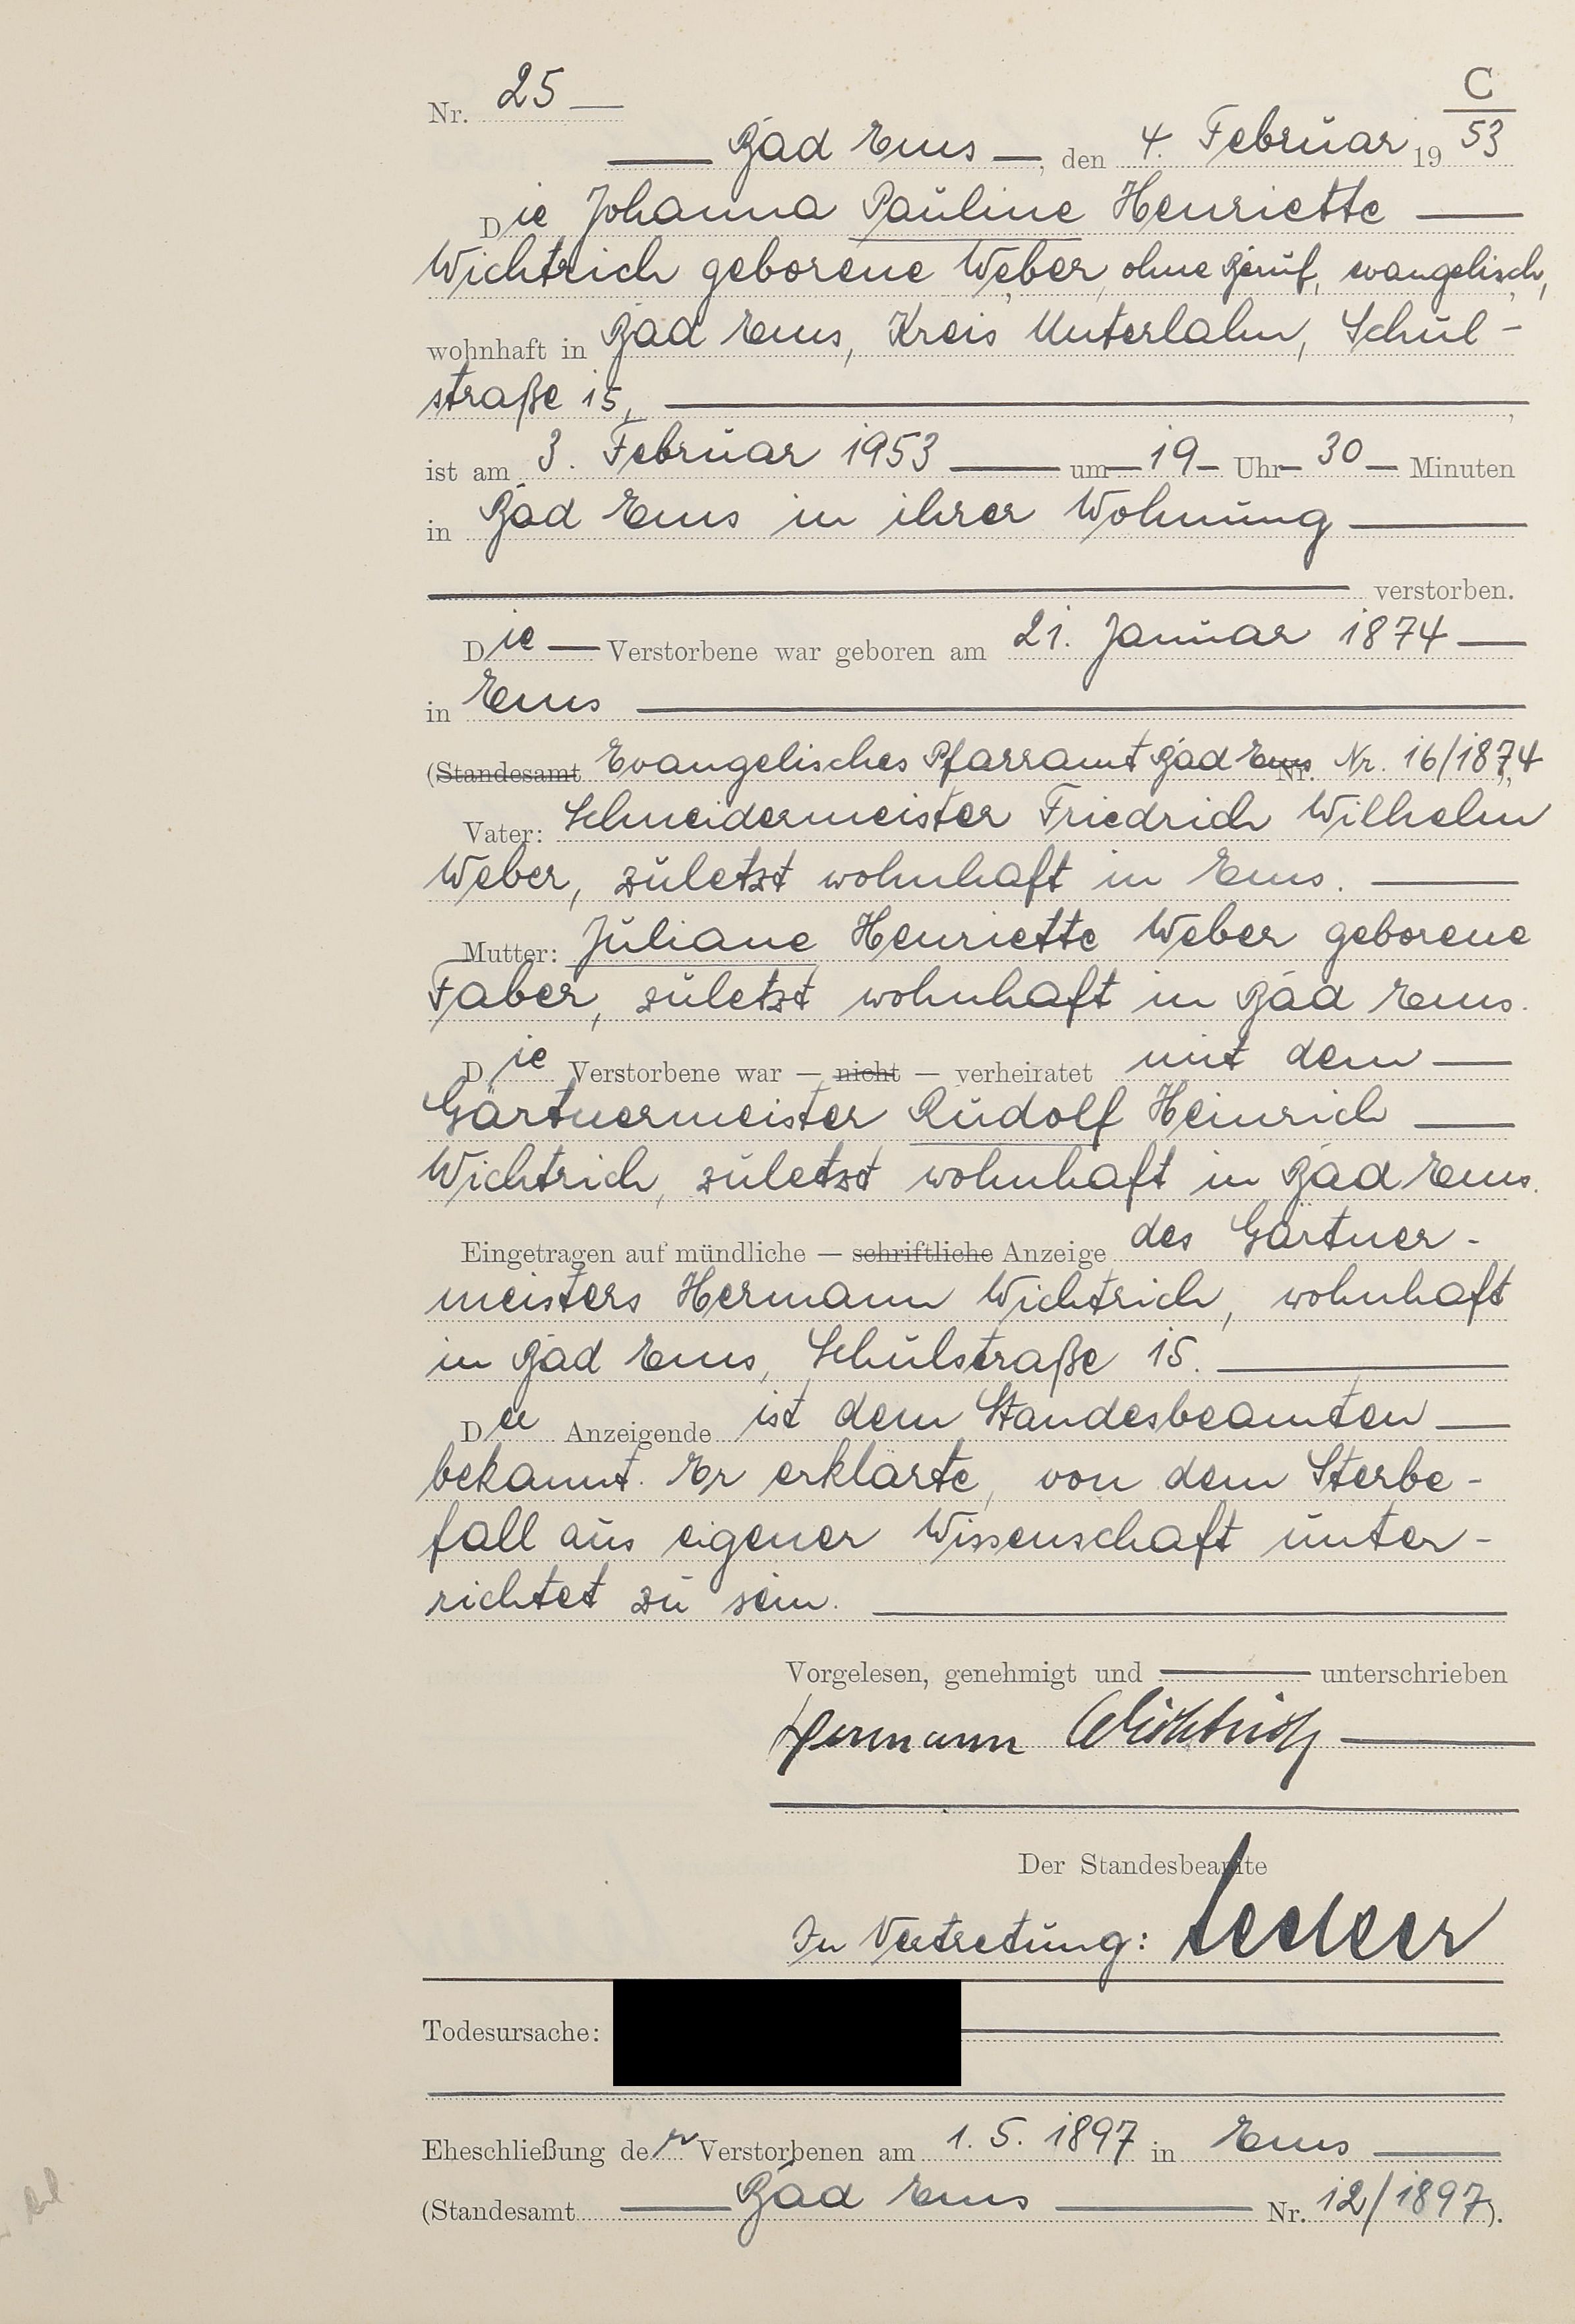 C
Nr. 25
Bad Ems, den 4. Februar 1953
Die Johanna Pauline Henriette
Wichtrich geborene Weber, ohne Beruf, evangelisch,
wohnhaft in Bad Ems, Kreis Unterlahn, Schul-
straße 15,
ist am 3. Februar 1953 um 19 Uhr 30 Minuten
in Bad Ems in ihrer Wohnung
verstorben.
Die Verstorbene war geboren am 21. Januar 1874
in Ems
(Standesamt Evangelisches Pfarramt Bad Ems Nr. Nr. 16/1874
Vater: Schneidermeister Friedrich Wilhelm
Weber, zuletzt wohnhaft in Ems.
Mutter: Juliane Henriette Weber geborene
Faber, zuletzt wohnhaft in Bad Ems.
Die Verstorbene war — nicht — verheiratet mit dem
Gärtnermeister Rudolf Heinrich
Wichtrich, zuletzt wohnhaft in Bad Ems.
Eingetragen auf mündliche — schriftliche Anzeige des Gärtner-
meisters Hermann Wichtrich, wohnhaft
in Bad Ems, Schulstraße 15.
Der Anzeigende ist dem Standesbeamten
bekannt. Er erklärte, von dem Sterbe-
fall aus eigener Wissenschaft unter-
richtet zu sein.
Vorgelesen, genehmigt und unterschrieben
Hermann Wichtrich
Der Standesbeamte
In Vertretung:
Todesursache:
Eheschließung der Verstorbenen am 1. 5. 1897 in Ems
(Standesamt Bad Ems Nr. 12/1897).